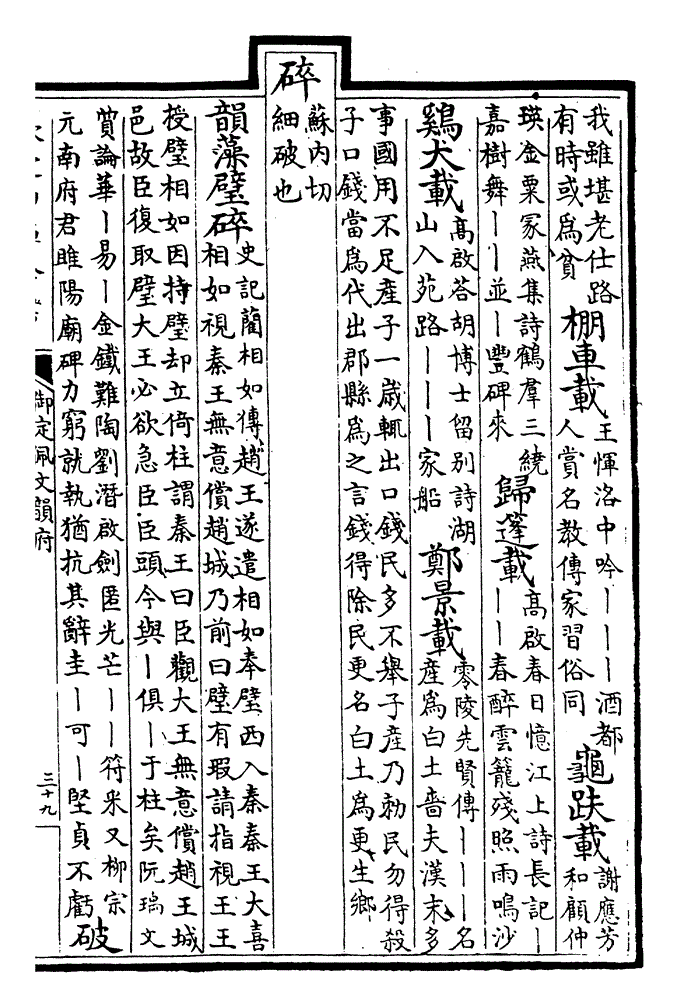 我雖堪老仕路
有時或爲貧
棚車載
王惲洛中吟丨丨丨酒都
人賞名教傳家習俗同
龜趺載
謝應芳
和顧仲
瑛金粟冢燕集詩鶴羣三繞
嘉樹舞丨丨並丨豐碑來
歸篷載
高啟春日憶江上詩長記丨
丨丨春醉雲籠殘照雨鳴沙
鷄犬載
高啟答胡博士留别詩湖
山入苑路丨丨丨家船
鄭景載
零陵先賢傳丨丨丨名
產爲白土嗇夫漢末多
事國用不足產子一歲輒出口錢民多不舉子產乃勅民勿得殺
子口錢當爲代出郡縣爲之言錢得除民更名白土爲更生鄉
碎
蘇內切
細破也
韻藻璧碎
史記藺相如傳趙王遂遣相如奉璧西入秦秦王大喜
相如視秦王無意償趙城乃前曰璧有瑕請指視王王
授璧相如因持璧却立倚柱謂秦王曰臣觀大王無意償趙王城
邑故臣復取璧大王必欲急臣臣頭今與丨俱丨于柱矣阮瑀文
質論華丨易丨金鐵難陶劉潛啟劍匿光芒丨丨符采又柳宗
元南府君睢陽廟碑力窮就執猶抗其辭圭丨可丨堅貞不虧
破
御定佩文韻府
三十九